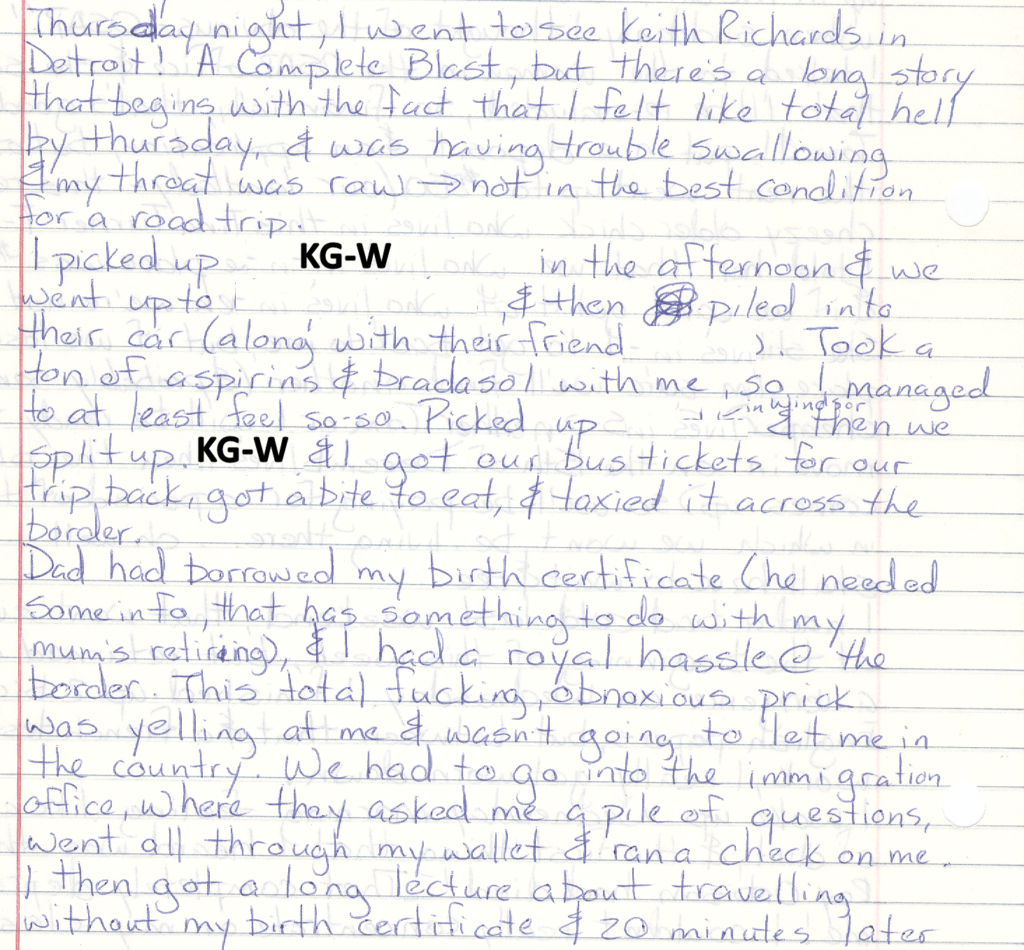 Thursday night, I went to see Keith Richards in
Detroit! A Complete Blast, but there's a long story
that begins with the fact that I felt like total hell
by thursday, & was having trouble swallowing
& my throat was raw → not in the best condition
for a road trip.
I picked up KG-W in the afternoon & we
went up to , & then piled into
their car (along with their friend ). Took a
ton of aspirins & bradasol with me, so I managed
to at least feel so-so. Picked up in Windsor & then we
split up. KG-W & I got our bus tickets for our
trip back, got a bite to eat, & taxied it across the
border.
Dad had borrowed my birth certificate (he needed
some info, that has something to do with my
mum's retiring), & I had a royal hassle @ the
border. This total fucking, obnoxious prick
was yelling at me & wasn't going to let me in
the country. We had to go into the immigration
office, where they asked me a pile of questions,
went all through my wallet & ran a check on me.
I then got a long lecture about travelling
without my birth certificate & 20 minutes later